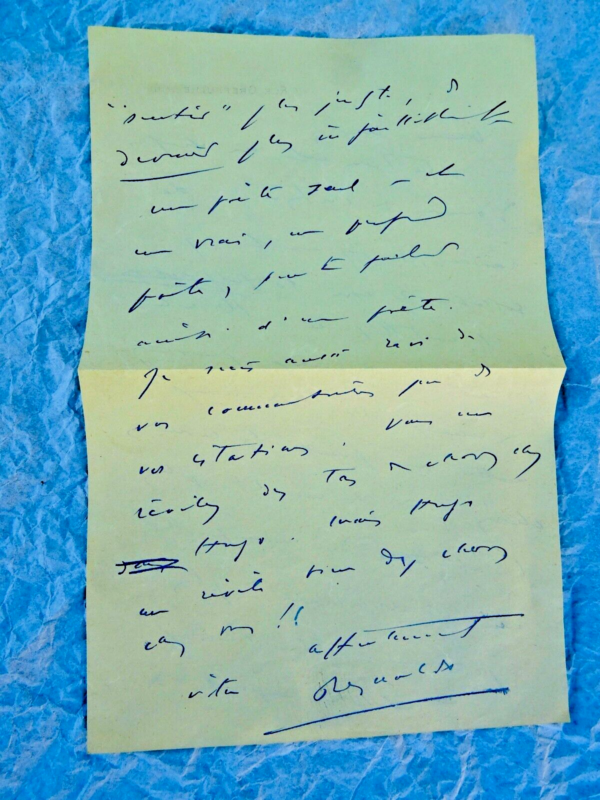 "sentir" plus juste,
plus infailliblement
un poète seul — et
un vrai, un profond
poète, peut parler
ainsi d'un poète.
Je suis aussi ravi de
vos commentaires que de
vos citations. Vous me
révélez des tas de choses chez
Hugo. Mais Hugo
me révèle bien des choses
chez vous !!
affectueusement
votre Reynaldo